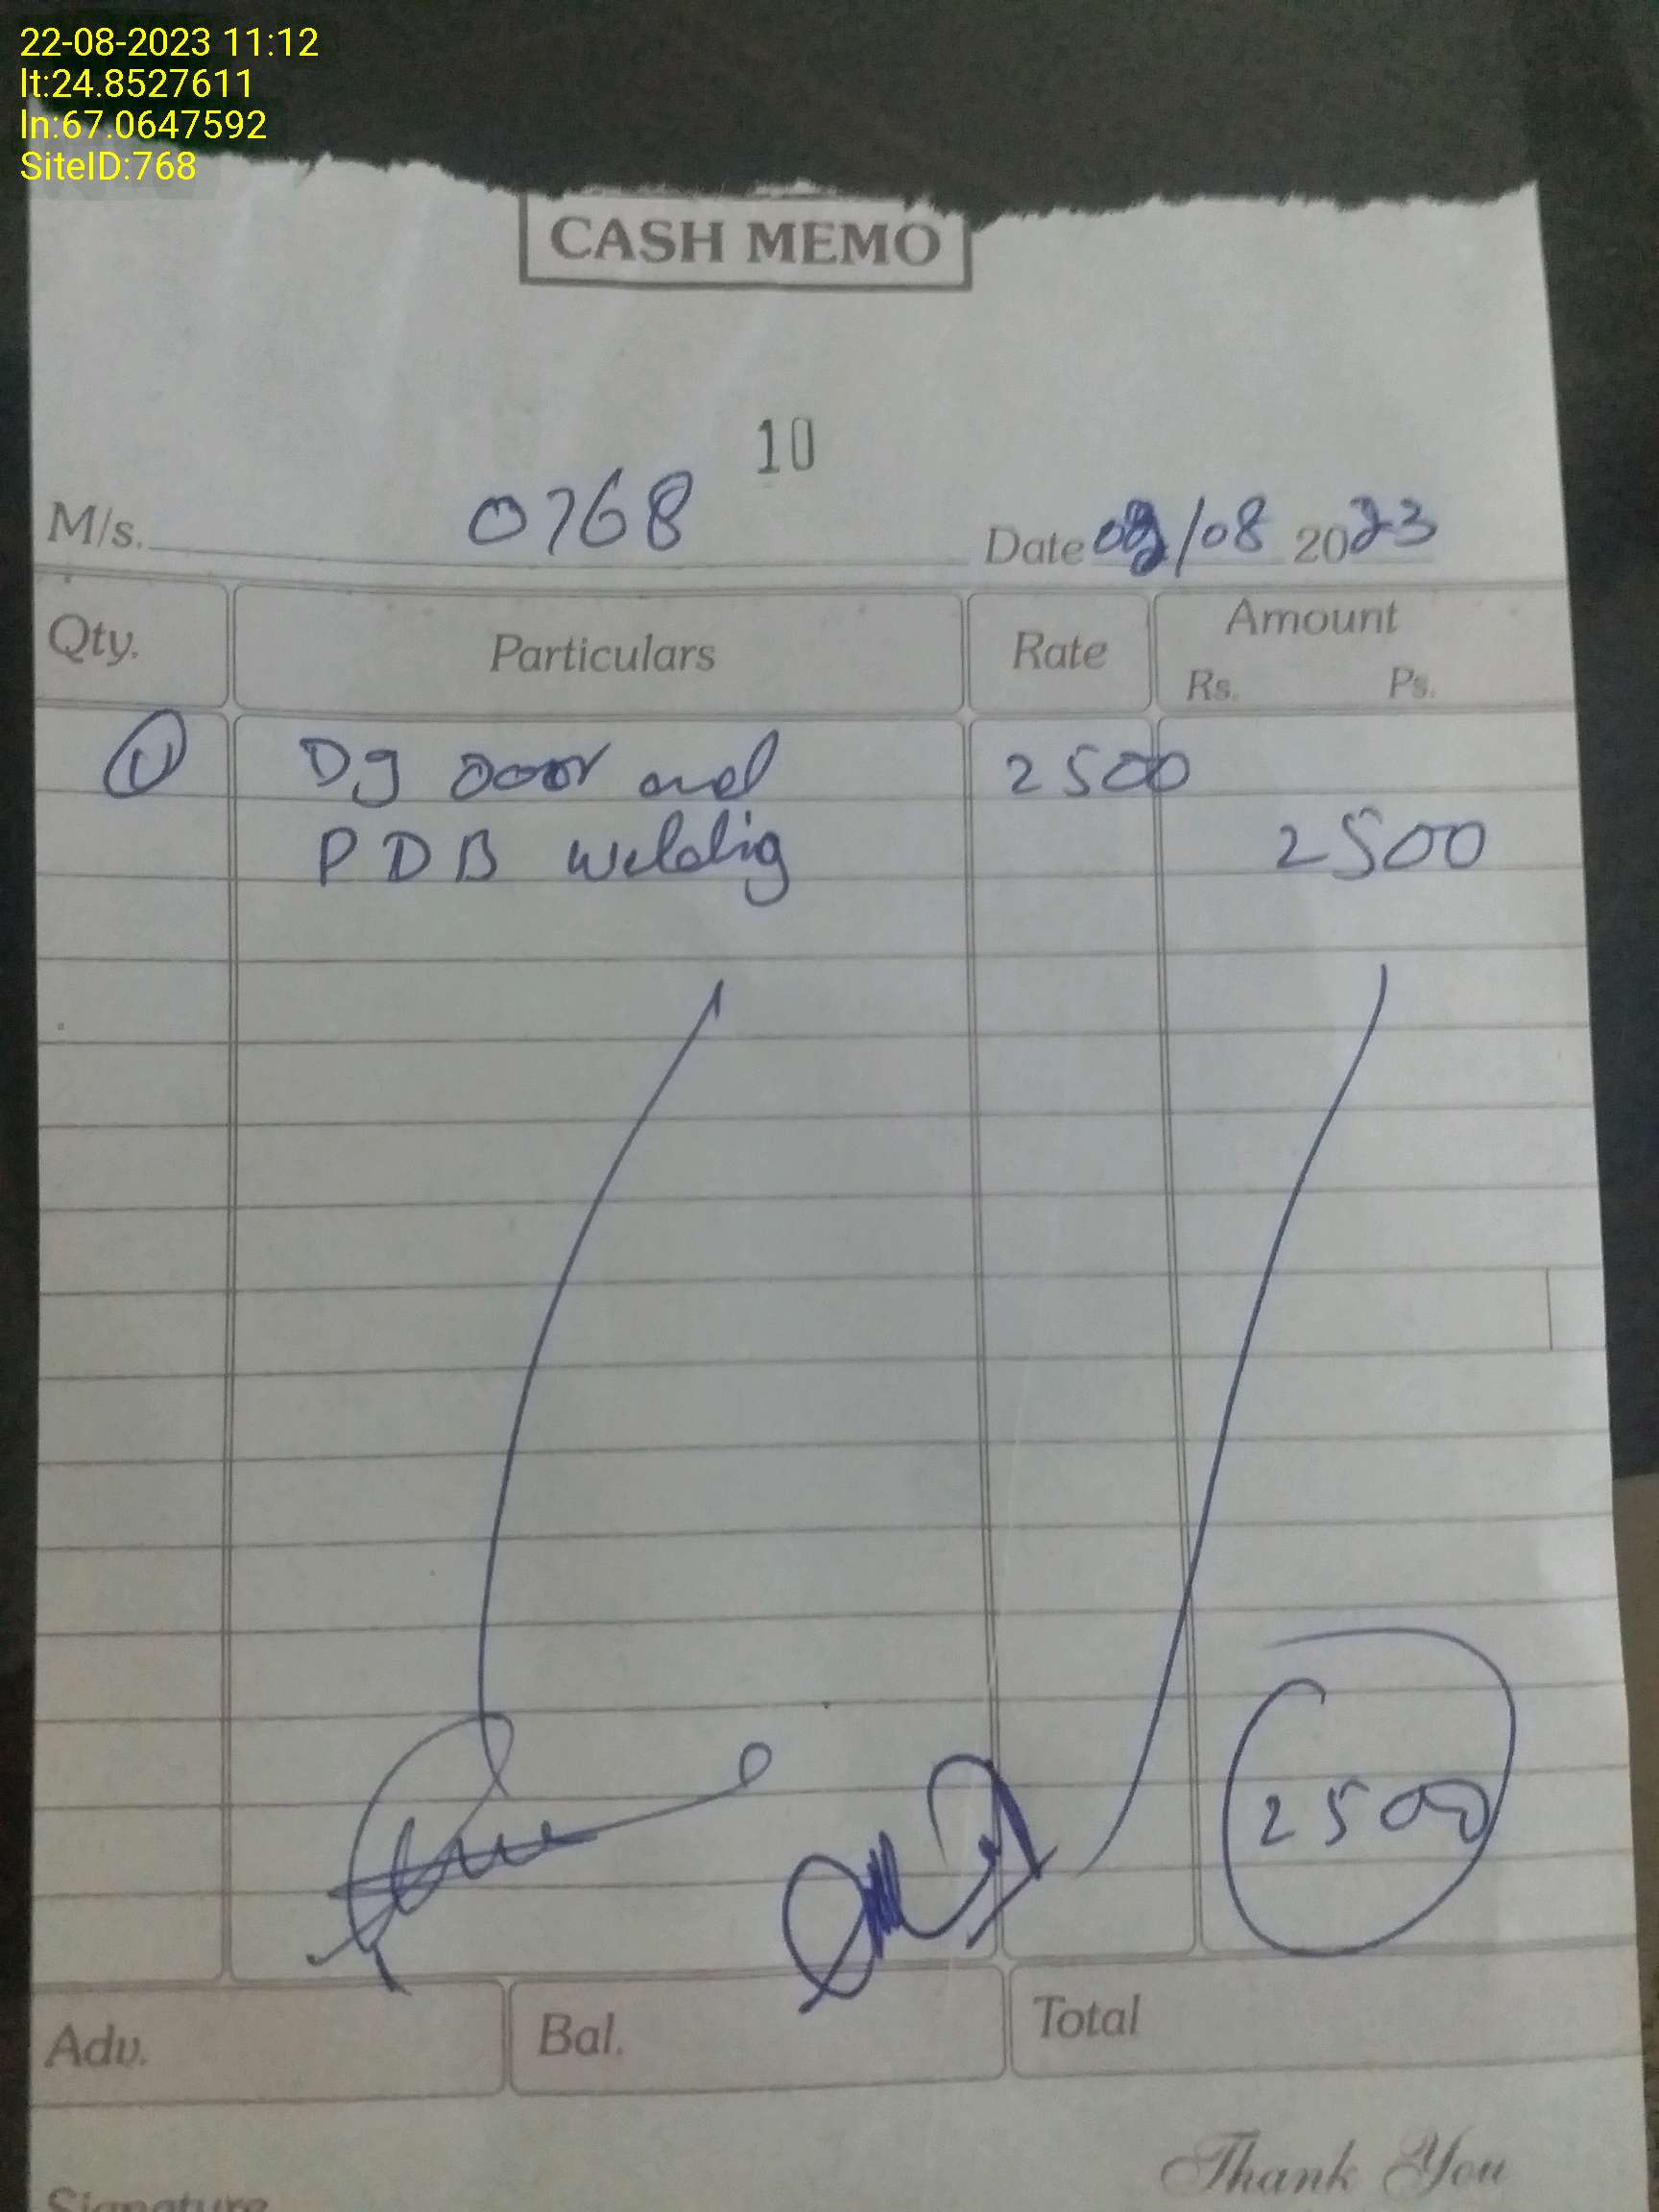 22-08-2023 11:12
lt:24.8527611
ln:67.0647592
SiteID:768
CASH MEMO
10
M/s. 0768 Date /08 2023
Qty. Particulars Rate Amount
Rs. Ps.
1 Dg Door and 2500
PDB weldig 2500
2500
Adv. Bal. Total
Thank You
Signature